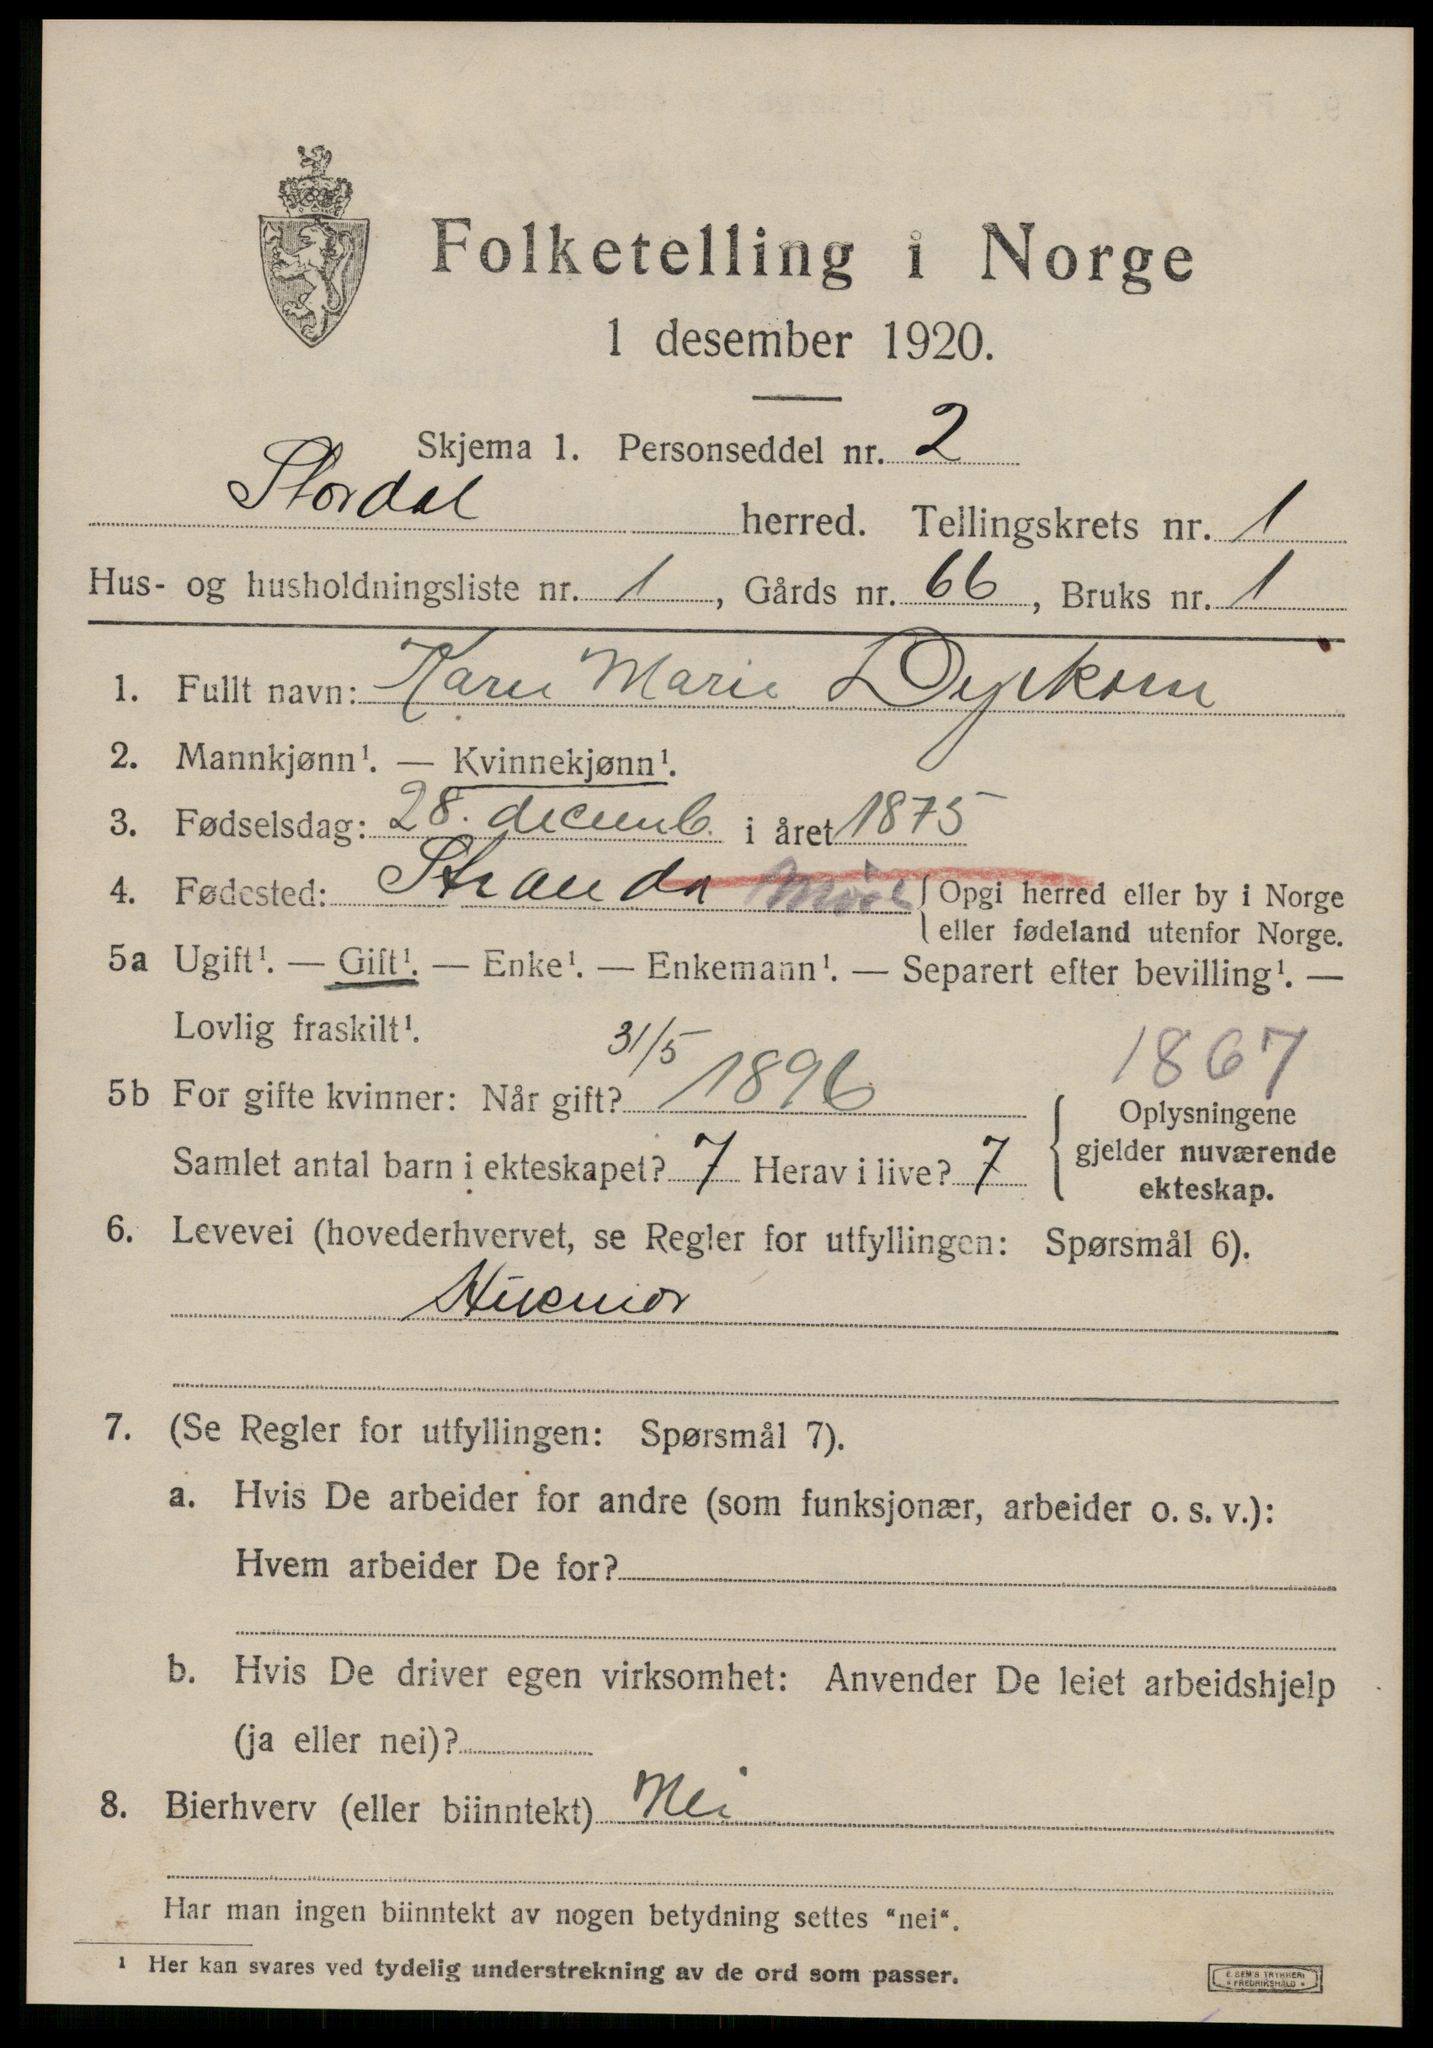 Folketelling i Norge
1 desember 1920.
Skjema 1. Personseddel nr. 2
Stordal herred. Tellingskrets nr. 1
Hus- og husholdningsliste nr. 1, Gårds nr. 66, Bruks nr. 1
1. Fullt navn: Karen Marie Dyrkorn
2. Mannkjønn¹. — Kvinnekjønn¹.
3. Fødselsdag: 28. decemb. i året 1875
4. Fødested: Stranda Møre { Opgi herred eller by i Norge
eller fødeland utenfor Norge.
5a Ugift¹. — Gift¹. — Enke¹. — Enkemann¹. — Separert efter bevilling¹. —
Lovlig fraskilt¹.
1867
5b For gifte kvinner: Når gift? 31/5 1896
Samlet antal barn i ekteskapet? 7 Herav i live? 7
Oplysningene
gjelder nuværende
ekteskap.
6. Levevei (hovederhvervet, se Regler for utfyllingen: Spørsmål 6).
Husmor
7. (Se Regler for utfyllingen: Spørsmål 7).
a. Hvis De arbeider for andre (som funksjonær, arbeider o. s. v.):
Hvem arbeider De for?
b. Hvis De driver egen virksomhet: Anvender De leiet arbeidshjelp
(ja eller nei)?
8. Bierhverv (eller biinntekt) Nei
Har man ingen biinntekt av nogen betydning settes "nei".
¹ Her kan svares ved tydelig understrekning av de ord som passer.
E. SEM'S TRYKKERI
* FREDRIKSHALD *